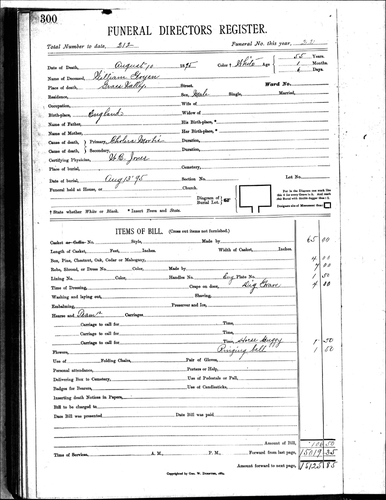 300
FUNERAL DIRECTORS REGISTER.
Total Number to date, 212 Funeral No. this year,
Date of Death, August 10 1895 Color † White Age 55 Years
1 Months
6 Days
Name of Deceased, William
Place of death, Grass Valley Street, Ward No.
Residence, Sex, Male Single, Married,
Occupation, Wife of
Birth-place, England Widow of
Name of Father, His Birth-place, *
Name of Mother, Her Birth-place, *
Cause of death, Primary, Cholera Morbus Duration,
Cause of death, Secondary, Duration,
Certifying Physician, W.C. Jones Cemetery,
Date of burial, Aug 13 '95 Section No. Lot No.
Funeral held at House, or Church.
Diagram of Burial Lot.
† State whether White or Black. * Insert Town and State.
ITEMS OF BILL. (Cross out items not furnished.)
Casket No. Style, Made by 65 00
Length of Casket, Feet, Inches. Width of Casket, Inches.
Box, Pine, Chestnut, Oak, Cedar or Mahogany, 4 00
Robe, Shroud, or Dress No. Color, Made by 7 00
Lining No. Color, Handles No. Eng Plate No. 1 50
Time of Dressing, Crape on door, Dig Grave 4 00
Washing and laying out, Shaving,
Embalming, Preserver and Ice,
Hearse and Team
Carriage to call for Time,
Carriage to call for Time,
Carriage to call for Time,
Carriage to call for Time, Horse Buggy 1 50
Flowers, Ringing bell 1 50
Use of Folding Chairs, Pair of Gloves,
Personal attendance, Porters or Help,
Delivering Box to Cemetery, Use of Pedestals or Pall,
Badges for Bearers, Use of Candlesticks,
Inserting death Notices in Papers,
Bill to be charged to
Date Bill was presented Date Bill was paid
Amount of Bill,
Time of Services, A. M., P. M., Forward from last page, 15019 35
Amount forward to next page,